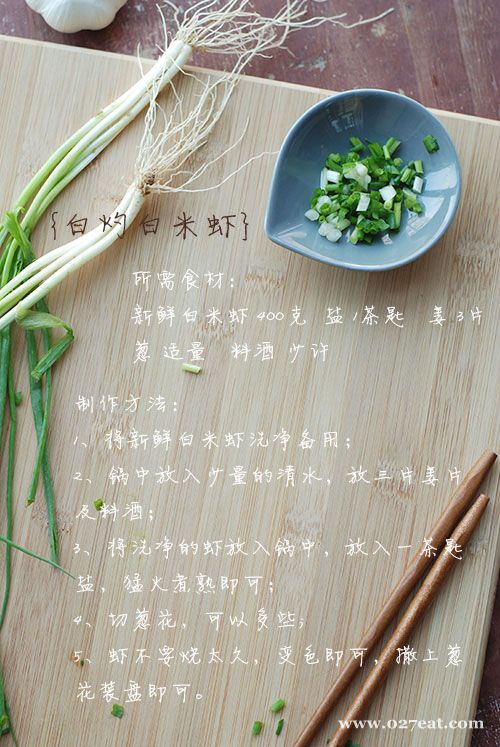 {白灼白米虾}
所需食材：
新鲜白米虾 400克 盐 1茶匙 姜 3片
葱 适量 料酒 少许
制作方法：
1、将新鲜白米虾洗净备用；
2、锅中放入少量的清水，放三片姜片
及料酒；
3、将洗净的虾放入锅中，放入一茶匙
盐，猛火煮熟即可；
4、切葱花，可以多些；
5、虾不要烧太久，变色即可，撒上葱
花装盘即可。
www.027eat.com